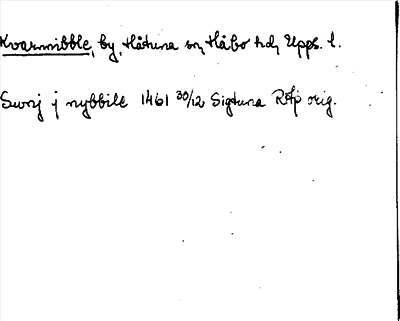 Kvarnnibble, by, Håtuna sn, Håbo hd, Upps. l.
Swnj j nybbile 1461 30/12 Sigtuna RAp orig.